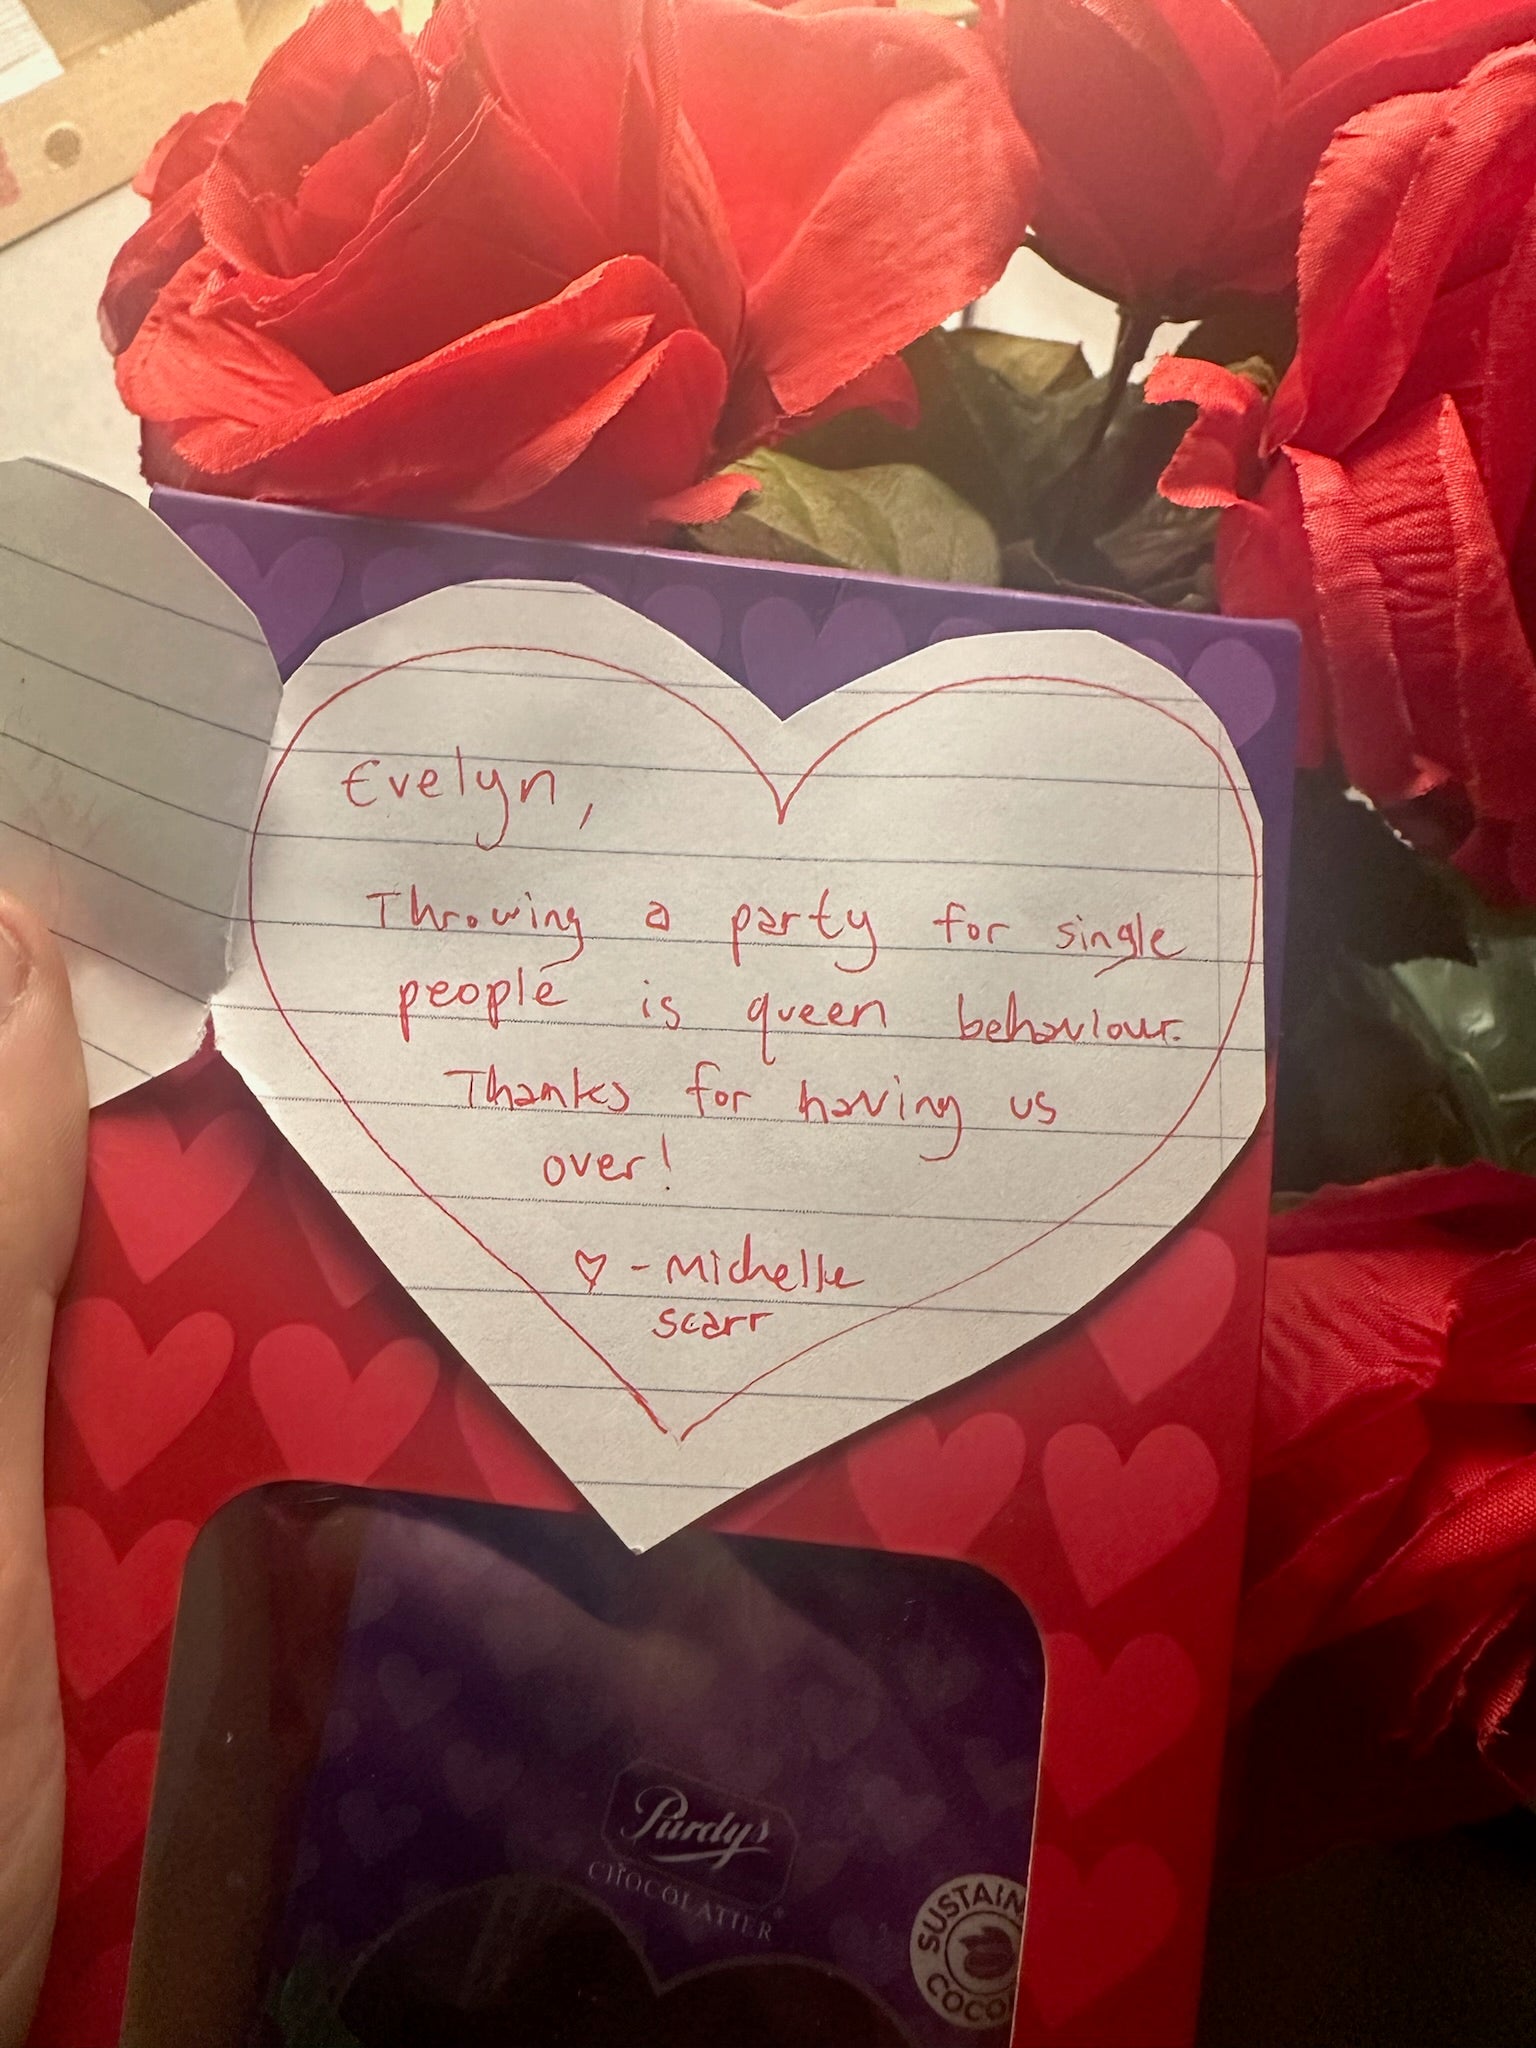 Evelyn,
Throwing a party for single
people is queen behaviour.
Thanks for having us
over!
♡ - Michelle
scarr
Purdys
CHOCOLATIER
SUSTAIN
COCO